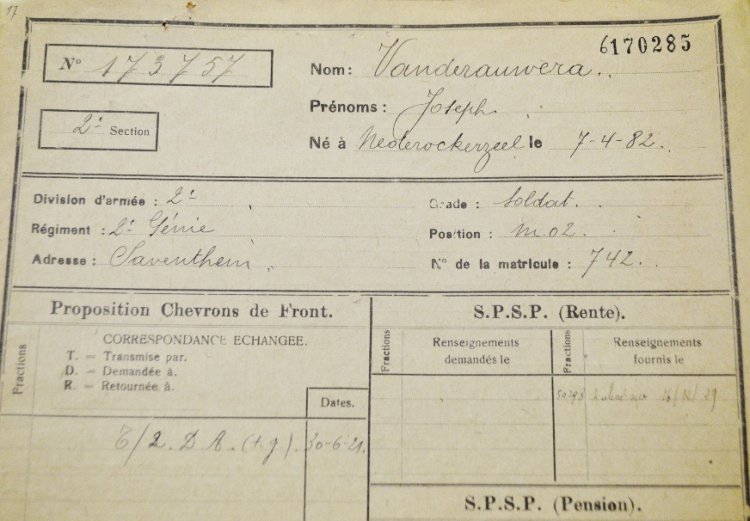 17
6170285
N° 173757
Nom: Vanderauwera
Prénoms: Joseph.
2e Section
Né à Nederockerzeel le 7-4-82.
Division d'armée: 2e
Grade: Soldat.
Régiment: 2e Génie
Position: m.02.
Adresse: Saventhem
N° de la matricule: 742.
Proposition Chevrons de Front.
Fractions
CORRESPONDANCE ECHANGEE.
T. = Transmise par.
D. = Demandée à.
R. = Retournée à.
Dates.
T/2. D A. (+.g). 30-6-21.
S.P.S.P. (Rente).
Fractions
Renseignements demandés le
Fractions
Renseignements fournis le
S.P.S.P. (Pension).